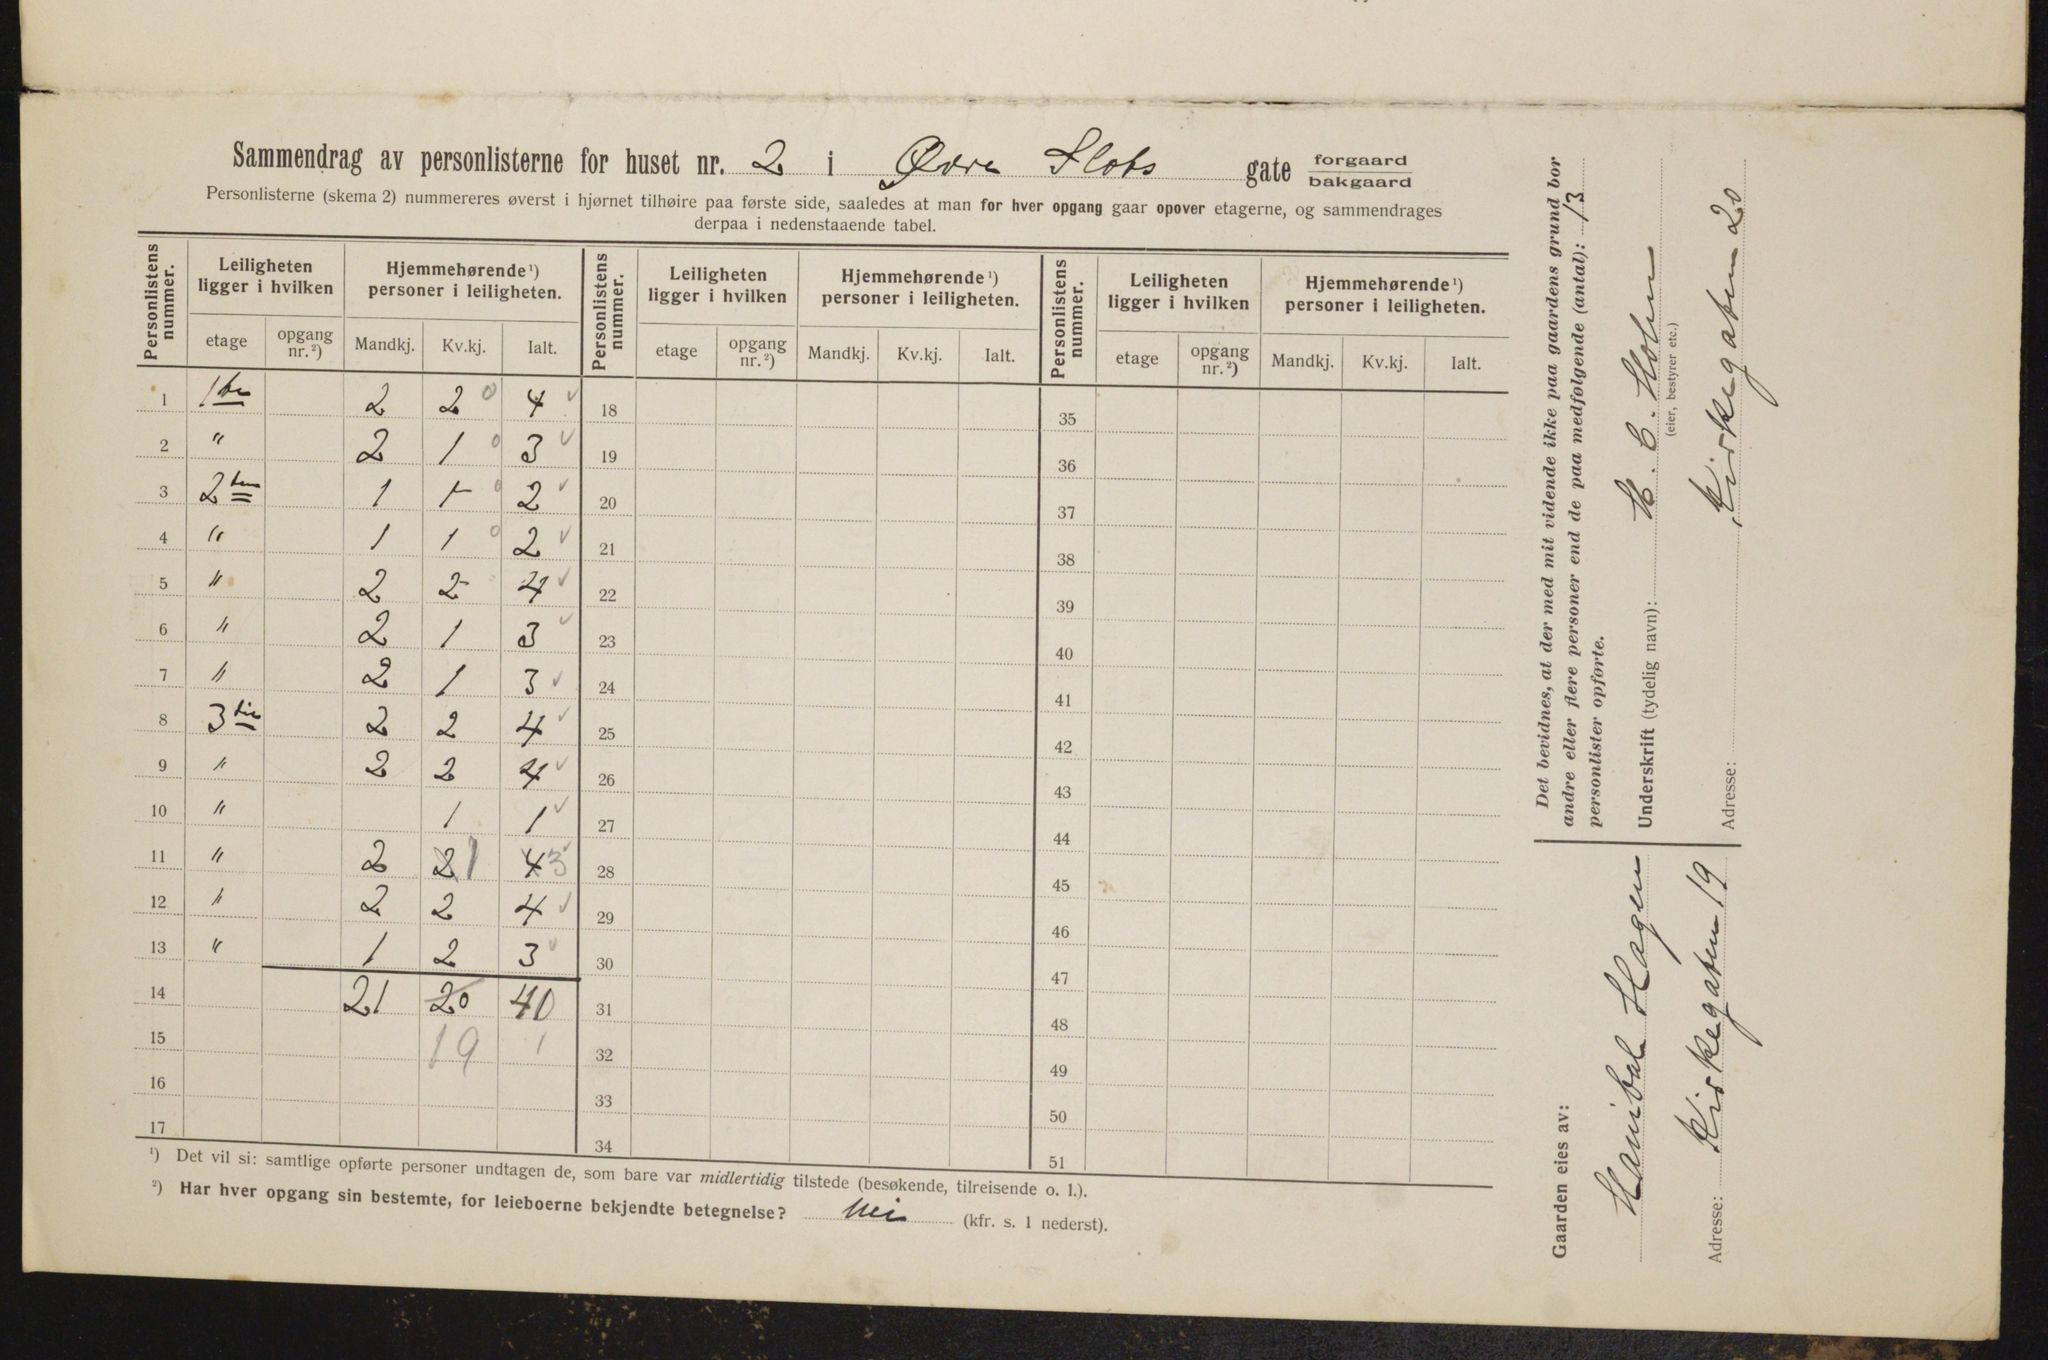 Sammendrag av personlisterne for huset nr. 2 i Øvre Slots gate forgaard bakgaard
Personlisterne (skema 2) nummereres øverst i hjørnet tilhøire paa første side, saaledes at man for hver opgang gaar opover etagerne, og sammendrages
derpaa i nedenstaaende tabel.
Personlistens nummer. Leiligheten ligger i hvilken Hjemmehørende ¹) personer i leiligheten. Personlistens nummer. Leiligheten ligger i hvilken Hjemmehørende ¹) personer i leiligheten. Personlistens nummer. Leiligheten ligger i hvilken Hjemmehørende ¹) personer i leiligheten.
etage opgang nr. ²) Mandkj. Kv.kj. Ialt. etage opgang nr. ²) Mandkj. Kv.kj. Ialt. etage opgang nr. ²) Mandkj. Kv.kj. Ialt.
1 1ste 2 2 0 4 ✓ 18 35
2 " 2 1 0 3 ✓ 19 36
3 2den 1 1 0 2 ✓ 20 37
4 " 1 1 0 2 ✓ 21 38
5 " 2 2 4 ✓ 22 39
6 " 2 1 3 ✓ 23 40
7 " 2 1 3 ✓ 24 41
8 3die 2 2 4 ✓ 25 42
9 " 2 2 4 ✓ 26 43
10 " 1 1 ✓ 27 44
11 " 2 2 1 4 3 ✓ 28 45
12 " 2 2 4 ✓ 29 46
13 " 1 2 3 ✓ 30 47
14 21 20 40 31 48
15 19 32 49
16 33 50
17 34 51
¹) Det vil si: samtlige opførte personer undtagen de, som bare var midlertidig tilstede (besøkende, tilreisende o. l.).
²) Har hver opgang sin bestemte, for leieboerne bekjendte betegnelse? Nei (kfr. s. 1 nederst).
Det bevidnes, at der med mit vidende ikke paa gaardens grund bor
andre eller flere personer end de paa medfølgende (antal): 13
personlister opførte.
Underskrift (tydelig navn): H. C. Holm
(eier, bestyrer etc.)
Adresse: Kirkegaten 20
Gaarden eies av:
Hanibal Hagen
Adresse: Kirkegaten 19